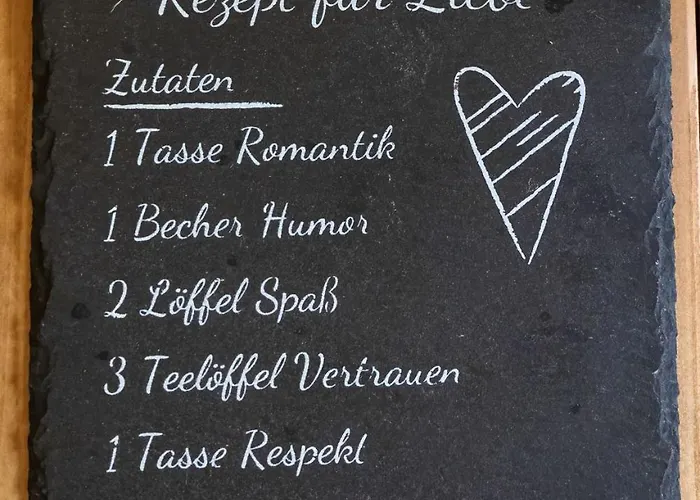 Rezept für Liebe
Zutaten
1 Tasse Romantik
1 Becher Humor
2 Löffel Spaß
3 Teelöffel Vertrauen
1 Tasse Respekt